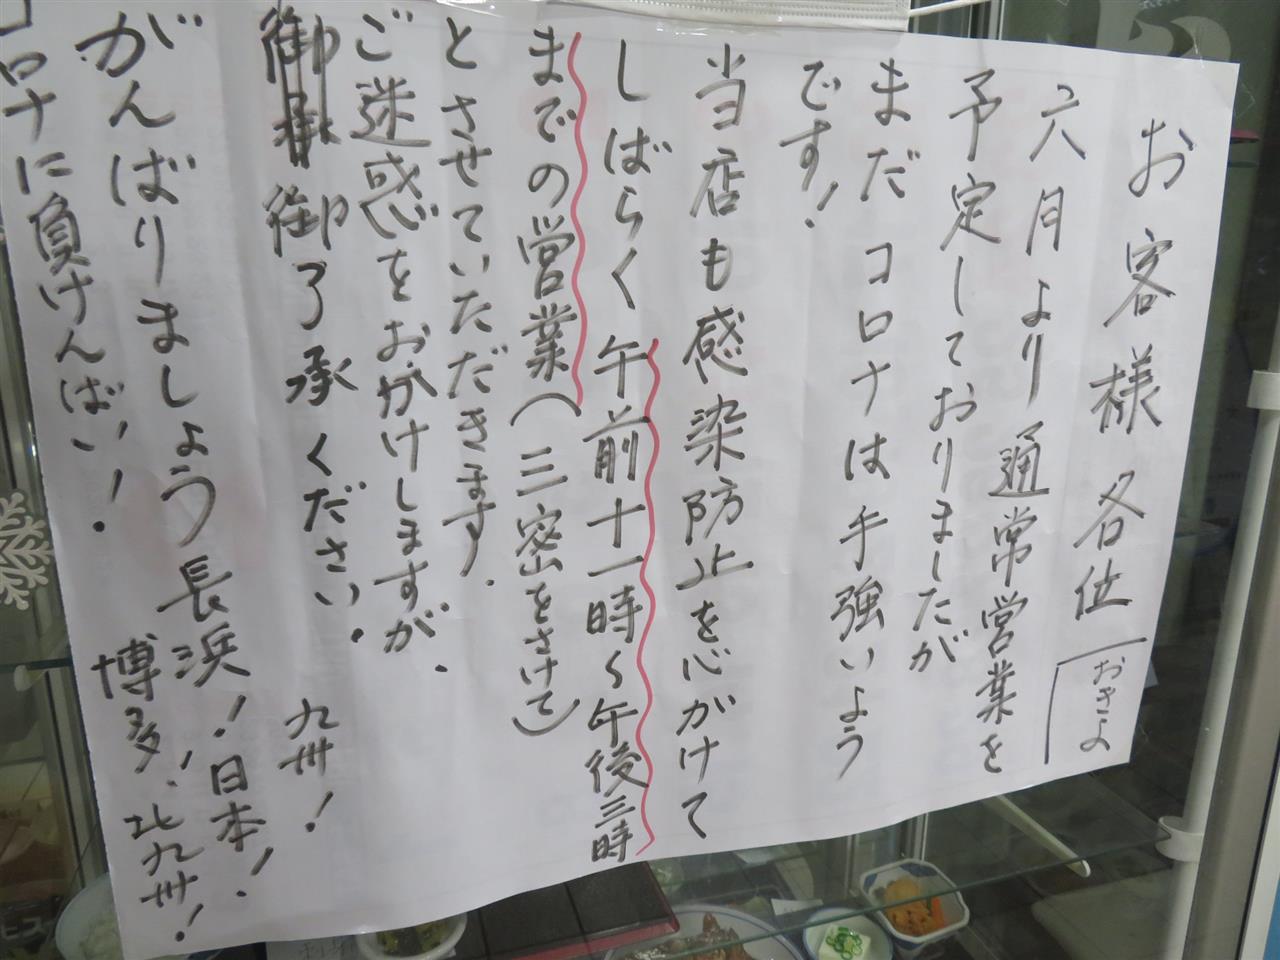 お客様各位
おきよ
六月より通常営業を
予定しておりましたが
まだコロナは手強いよう
です!
当店も感染防止を心がけて
しばらく午前十一時~午後三時
までの営業(三密をさけて)
とさせていただきます.
ご迷惑をおかけしますが.
御了承ください.
九州!
がんばりましょう長浜!日本!
博多!北九州!
コロナに負けんばい!